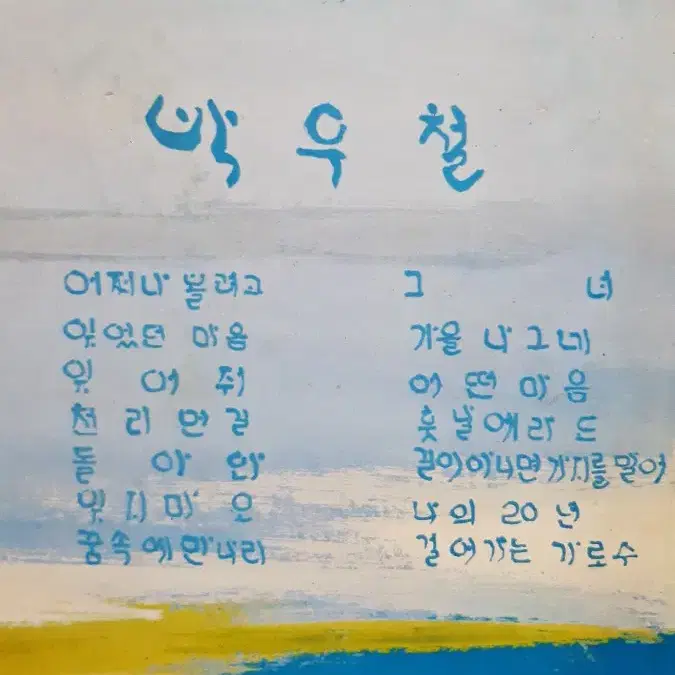 박 우 철
어쩌나 볼려고
잊었던 마음
잊 어 줘
천 리 먼 길
돌 아 와
잊 지 마 오
꿈속에만나리
그 녀
가을 나그네
어 떤 마 음
훗 날에라 도
길이아니면가지를말어
나의 20 년
걸어가는 가로수